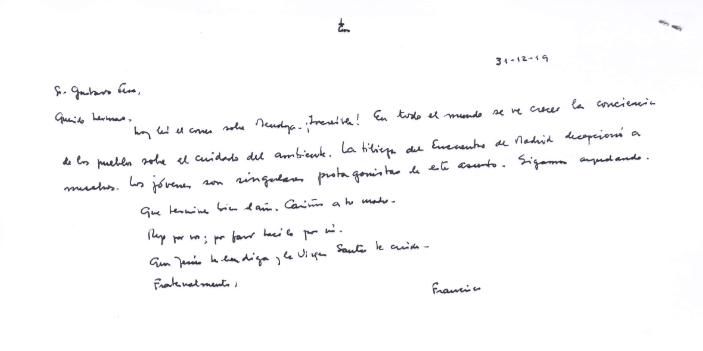 31-12-19
Sr. Gustavo
Querido hermano,
hoy leí el correo sobre Mendoza. ¡Increíble! En todo el mundo se ve crecer la conciencia
de los pueblos sobre el cuidado del ambiente. La tibieza del Encuentro de Madrid decepcionó a
muchos. Los jóvenes son singulares protagonistas de este asunto. Sigamos ayudando.
Que termine bien el año. Cariños a tu madre.
Rezo por vos; por favor hacelo por mí.
Que Jesús te bendiga y la Virgen Santa te cuide.
Fraternalmente,
Francisco